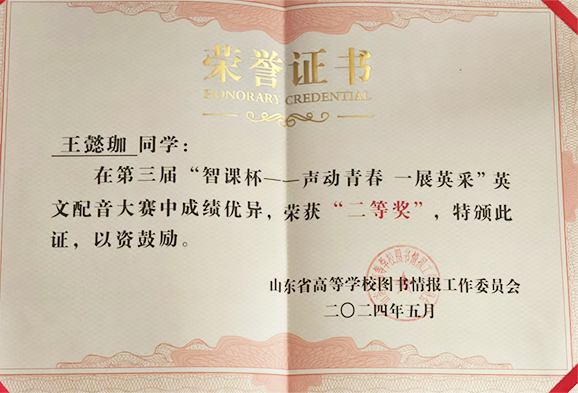 荣誉证书
HONORARY CREDENTIAL
王懿珈 同学：
在第三届“智课杯——声动青春 一展英采”英
文配音大赛中成绩优异，荣获“二等奖”，特颁此
证，以资鼓励。
山东省高等学校图书情报工作委员会
二〇二四年五月